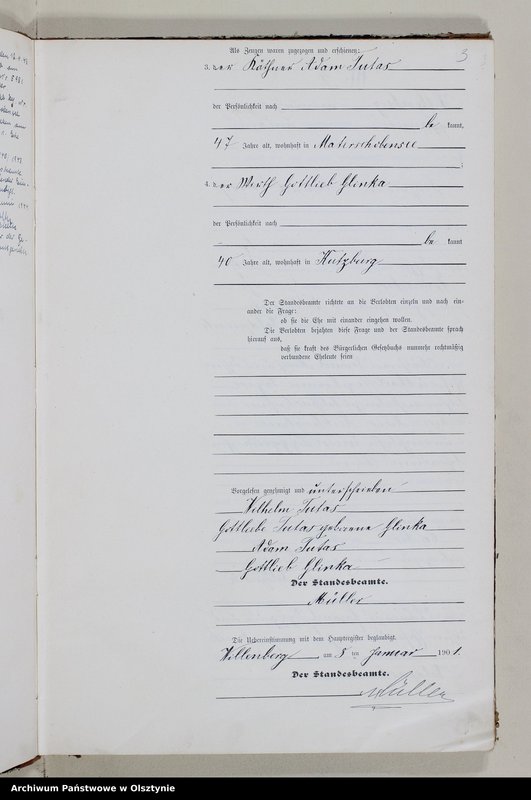 3
Als Zeugen waren zugezogen und erschienen:
3. der Käthner Adam Tutas
der Persönlichkeit nach
be kannt,
47 Jahre alt, wohnhaft in Materschobensee
;
4. der Wirth Gottlieb Glinka
der Persönlichkeit nach
be kannt
40 Jahre alt, wohnhaft in Kutzburg
Der Standesbeamte richtete an die Verlobten einzeln und nach ein-
ander die Frage:
ob sie die Ehe mit einander eingehen wollen.
Die Verlobten bejahten diese Frage und der Standesbeamte sprach
hierauf aus,
daß sie kraft des Bürgerlichen Gesetzbuchs nunmehr rechtmäßig
verbundene Eheleute seien
Vorgelesen genehmigt und unterschrieben
Wilhelm Tutas
Gottliebe Tutas geborene Glinka
Adam Tutas
Gottlieb Glinka
Der Standesbeamte.
Müller
Die Uebereinstimmung mit dem Hauptregister beglaubigt.
Willenberg am 5 ten Januar 1901.
Der Standesbeamte.
Müller
Archiwum Państwowe w Olsztynie